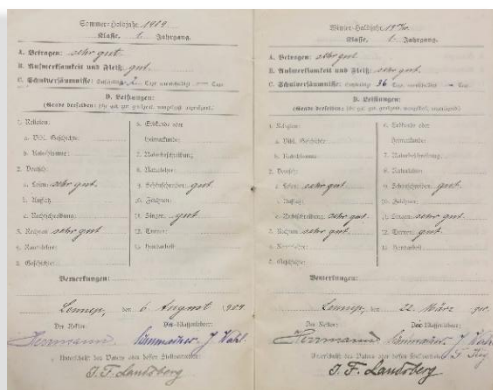 Sommer-Halbjahr 1919
Klasse, 1. Jahrgang.
A. Betragen: sehr gut
B. Aufmerksamkeit und Fleiß: gut.
C. Schulversäumnisse:
D. Leistungen:
(Grade derselben: sehr gut, gut, genügend, mangelhaft, ungenügend).
1. Religion:
a. Bibl. Geschichte:
b. Katechismus:
2. Deutsch:
a. Lesen: sehr gut.
b. Aufsatz:
c. Rechtschreibung:
3. Rechnen: sehr gut
4. Raumlehre:
5. Geschichte:
6. Erdkunde oder
Heimatkunde:
7. Naturbeschreibung:
8. Naturlehre:
9. Schönschreiben: gut
10. Zeichnen:
11. Singen: gut.
12. Turnen:
13. Handarbeit:
Bemerkungen:
Lennep, den 6 August 1919
Der Rektor: Der Klassenlehrer:
Herrmann
Unterschrift des Vaters oder dessen Stellvertreters:
J. F. Landsberg
Winter-Halbjahr
Klasse, 1. Jahrgang.
A. Betragen: sehr gut
B. Aufmerksamkeit und Fleiß: sehr gut.
C. Schulversäumnisse: 36 Tage
D. Leistungen:
(Grade derselben: sehr gut, gut, genügend, mangelhaft, ungenügend).
1. Religion:
a. Bibl. Geschichte:
b. Katechismus:
2. Deutsch:
a. Lesen: sehr gut.
b. Aufsatz:
c. Rechtschreibung: sehr gut.
3. Rechnen: sehr gut.
4. Raumlehre:
5. Geschichte:
6. Erdkunde oder
Heimatkunde:
7. Naturbeschreibung:
8. Naturlehre:
9. Schönschreiben: gut.
10. Zeichnen:
11. Singen: sehr gut.
12. Turnen: gut.
13. Handarbeit:
Bemerkungen:
Lennep, den 22. März
Der Rektor: Der Klassenlehrer:
Herrmann
Unterschrift des Vaters oder dessen Stellvertreters:
J. F. Landsberg.